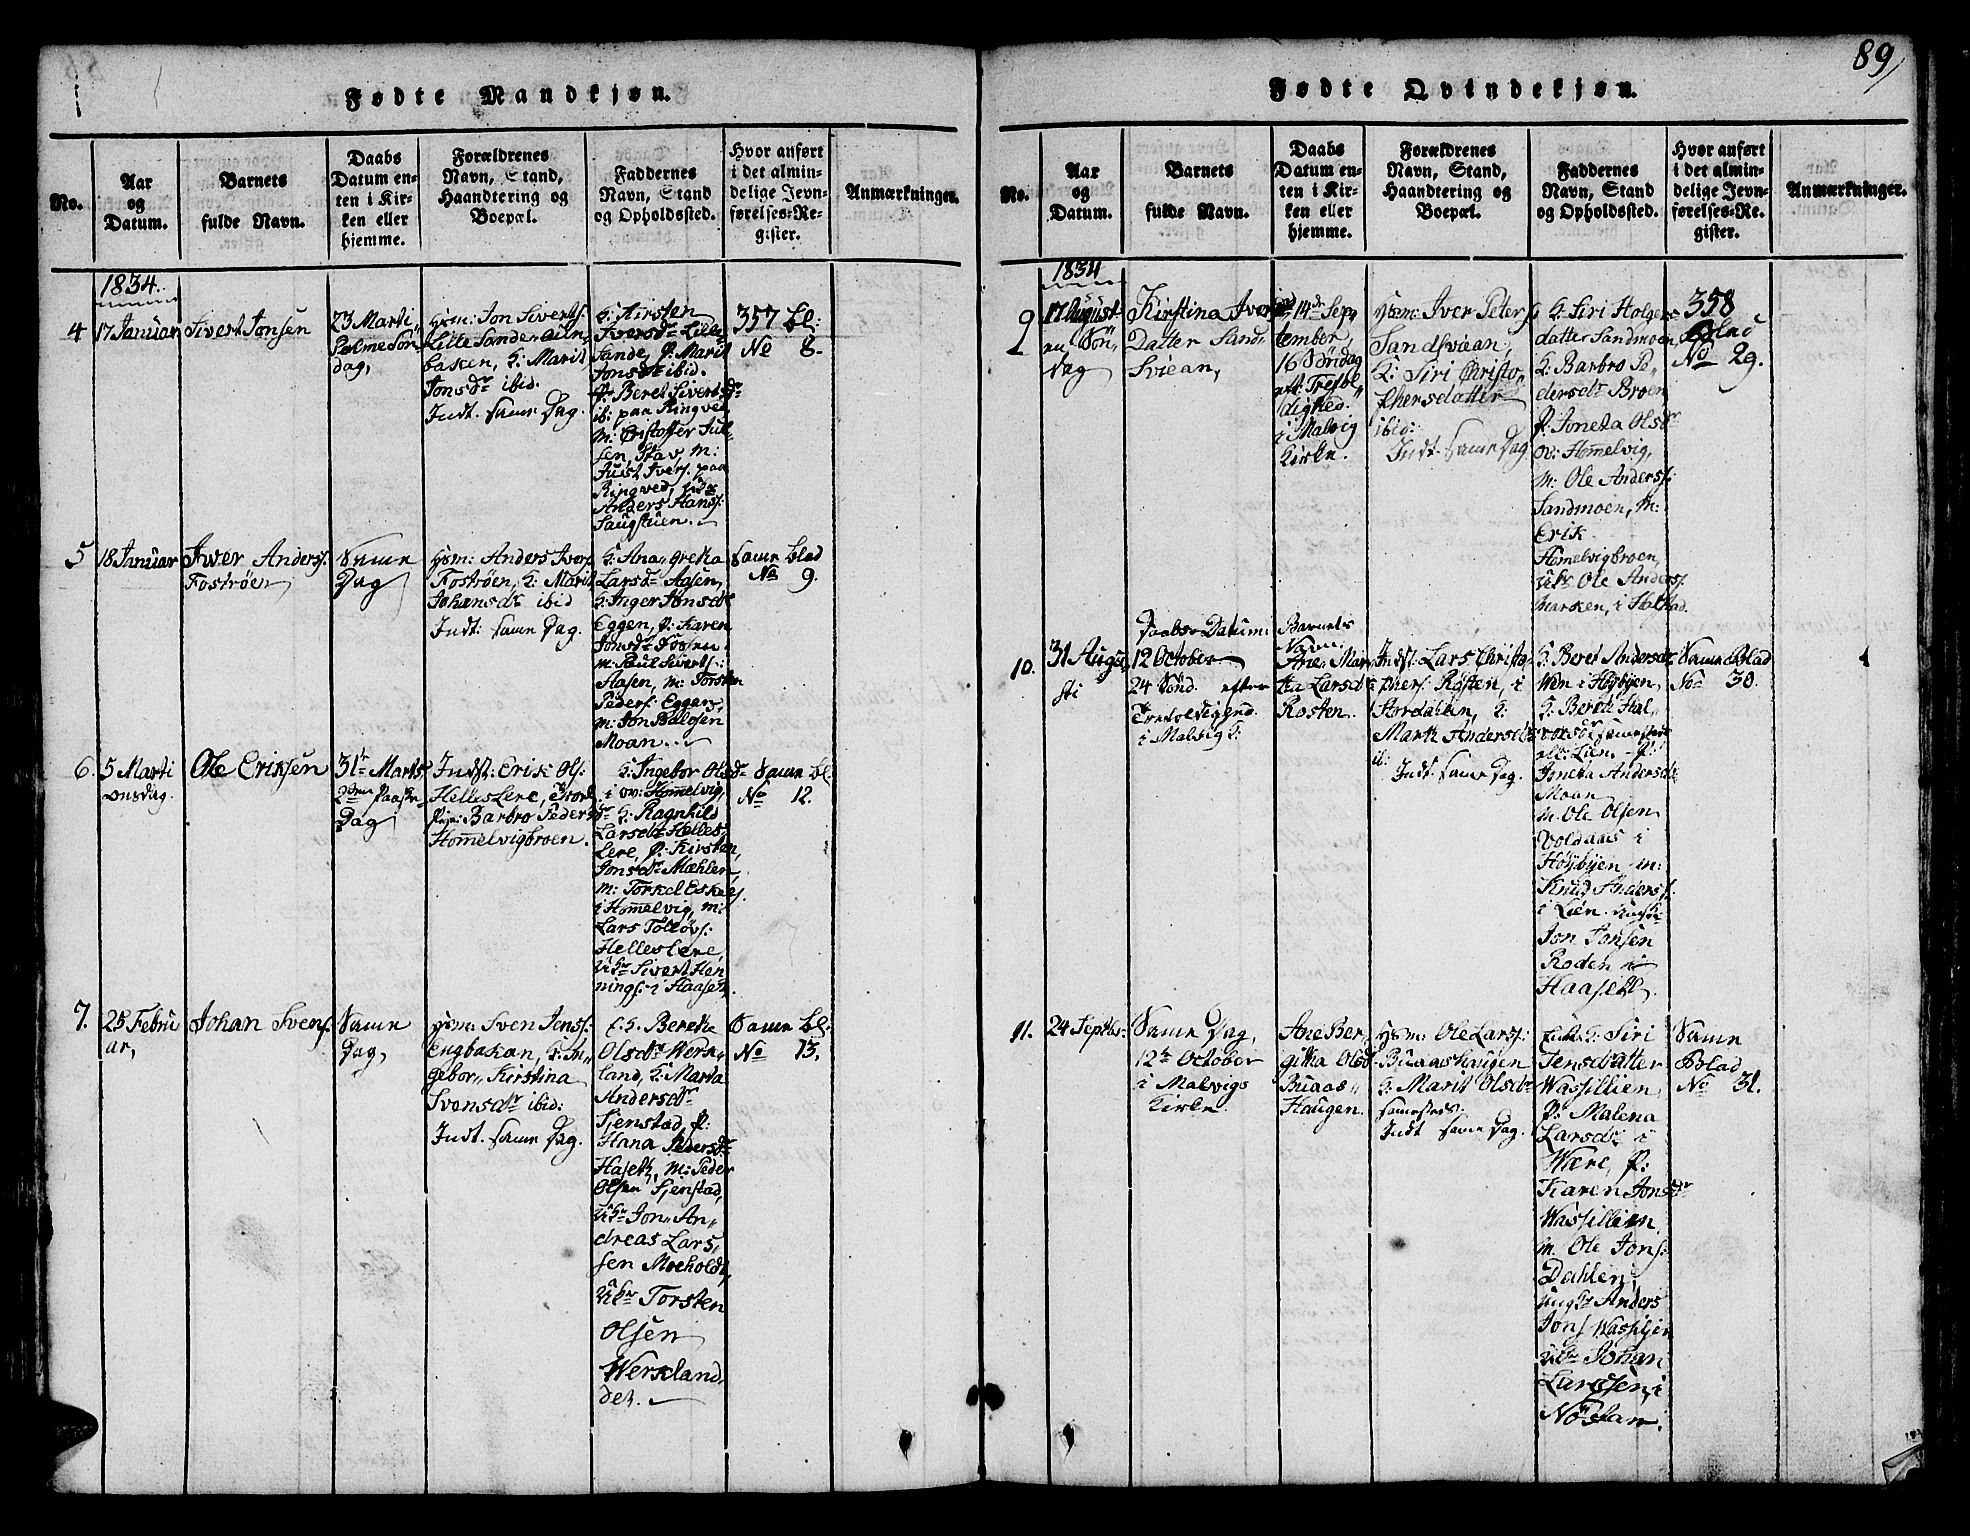 Fødte Mandkjøn.
No.
Aar
og
Datum.
Barnets
fulde Navn.
Daabs
Datum en-
ten i Kir-
ken eller
hjemme.
Forældrenes
Navn, Stand,
Haandtering og
Boepæl.
Faddernes
Navn, Stand
og Opholdssted.
Hvor anført
i det almin-
delige Jevn-
førelses-Re-
gister.
Anmærkninger.
1834.
4
17 Januar
Sivert Jonsen
23 Marti
Palme Søn
dag,
Hsm: Jon Siverts:
Lille Sande Aln
baken, K: Marit
Jonsdr ibid.
Indt. samme Dag.
K: Kirsten
Iversdr Lille
Sande, P. Marit
Jonsdr ibid.
P. Beret Sivertsdr
ib: paa Ringved
M: Cristoffer Jul
sen, Stav, M:
Just Ivers. paa
Ringved,
Anders Hans:
Saugstuen.
357 bl:
No 8.
5
18 Januar
Iver Anders:
Fostrøen
Samme
Dag
Hsm: Anders Ivers
Fostrøen, K: Marit
Johansdr ibid
Indt: samme Dag.
K: Ana Greta
Larsdr Aasen,
K: Inger Jonsdr
Eggen, P: Karen
Jonsdr Fossen
M: Paul Siverts:
Aasen, M: Torsten
Peders: Eggen,
M: Jon Baldsen
Moan.
Samme blad
No 9.
6.
5 Marti
onsdag.
Ole Eriksen
31te Marts
2den Paaske
Dag
Indst: Erik Ols:
Helleslere,
Pige: Barbro Pedersdr
Hommelvigbroen.
K: Ingebor Olsdr
i ov: Hommelvig,
K: Ragnhild
Larsdr Helles
Lere, P: Kirsten
Jonsdr Mæhlen,
M: Torkel Eskels.
i Hommelvig, M:
Lars Tollövs:
Helleslere,
Ukr Sivert Hen
nings: i Haasen
Samme bl.
No 12.
7.
25 Febru
ar,
Johan Svens.
Samme
Dag,
Hsm: Sven Jens:
Engbakan, K: In
gebor Kirstina
Svensdr ibid:
Indt. samme Dag.
K. Berethe
Olsdr Werk
land, K: Marta
Andersdr
Sjenstad, P:
Hana Pedersdr
Haseth, M: Peder
Olsen Sjenstad,
Ukr Jon An
dreas Lars
sen Moeholdt,
Ukr Torsten
Olsen
Werkland
det.
Samme bl:
No 13.
89
Fødte Qvindekjøn.
No.
Aar
og
Datum.
Barnets
fulde Navn.
Daabs
Datum en-
ten i Kir-
ken eller
hjemme.
Forældrenes
Navn, Stand,
Haandtering og
Boepæl.
Faddernes
Navn, Stand
og Opholdssted.
Hvor anført
i det almin-
delige Jevn-
førelses-Re-
gister.
Anmærkninger.
1834
9
17 August
en Søn
dag
Kirstina Ivers
Datter Sand
Sviean,
14de Sep
tember,
16 Søndag
eft: Trefol
dighed.
i Malvig
Kirke.
Hsm: Iver Peters:
Sandsviean,
K: Siri Christo
phersdatter
ibid:
Indt. samme Dag
K: Siri Holgers
datter Sandmoen,
K: Barbro Pe
dersdr Broen
P: Joneta Olsdr
ov: Hommelvig,
M: Ole Anders:
Sandmoen, M:
Erik
Hommelvigbroen,
Ukr Ole Anders:
Marken, i Halstad.
358
Blad
No 29.
10.
31 Augu
sti
Daabs Datum:
12 October
24 Sønd. efter
Trefoldighed.
i Malvig K:
Barnets
Navn.
Ane Mar
ta Larsdr
Rosten.
Indst: Lars Christo
phers: Rosten, i
Stordalen, K:
Marth Andersdr
ib:
Indt. samme Dag.
K: Beret Andersdr
Wen i Høybyen,
K: Bereth Hal
vorsdr samesteds
P:
Joneta Andersdr
Moan
M. Ole Olsen
Voldaas i
Høybyen M:
Knud Anders:
i Lien.
Jon Jonsen
Roden i
Haaseth.
Samme Blad
No 30.
11.
24 Septbr:
Samme Dag,
12te October
i Malvigs
Kirke.
Ane Ber
githa Olsdr
Buaas
Haugen.
Hsm: Ole Lars:
Buaashaugen
K: Marit Olsdr
samesteds:
Indt samme Dag.
K: Siri
Jensdatter
Wassillien
P: Malena
Larsdr i
Være, P:
Karen Jonsdr
Wassillien
M. Ole Jons:
Dahlen,
Ungkr Anders
Jons Wassilien
Ukr Johan
Larssen, i
Nöstan.
Samme
Blad
No 31.